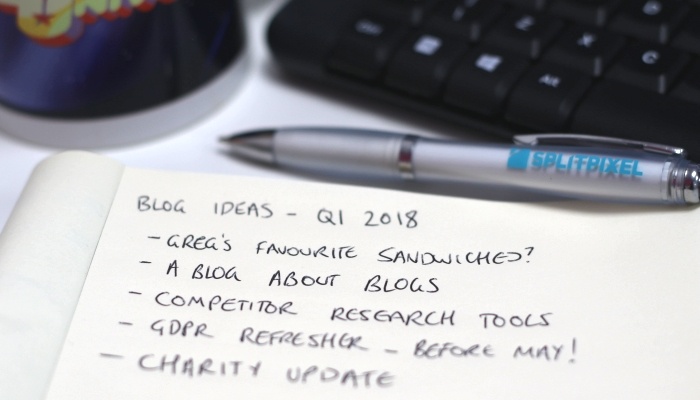 SPLITPIXEL
BLOG IDEAS - Q1 2018
- GREG'S FAVOURITE SANDWICHES?
- A BLOG ABOUT BLOGS
- COMPETITOR RESEARCH TOOLS
- GDPR REFRESHER - BEFORE MAY!
- CHARITY UPDATE